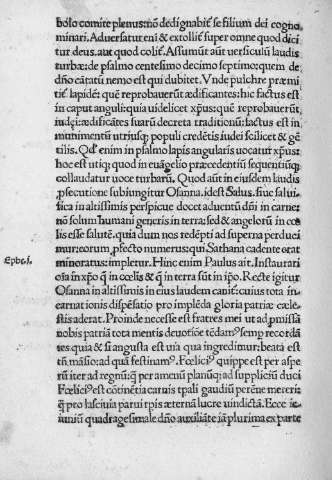 bolo comite plenus: nõ dedignabiť se filium dei cogno
minari. Aduersatur eni & extolliť super omne quod dici
tur deus. aut quod coliť. Assumũt aũt versiculũ laudis
turbæ: de psalmo centesimo decimo septimo: quem de
dño cãtatũ nemo est qui dubitet. Vnde pulchre præmi
tiť lapidẽ: quẽ reprobauerũt ædificantes: hic factus est
in caput anguli: quia videlicet xp̃us: quẽ reprobauerũt
iudęi: ædificãtes suarũ decreta traditionũ: factus est in
munimentũ utriusq; populi credẽtis iudei scilicet & gẽ
tilis. Qd̓ enim in psalmo lapis angularis uocatur xp̃us:
hoc est utiq; quod in euãgelio præcedentiũ sequentiũq;
collaudatur uoce turbarũ. Quod aũt in eiusdem laudis
ꝑsecutione subiungitur Osanna. idest Salus. siue salui
fica in altissimis perspicue docet aduentũ dñi in carne:
nõ solum humani generis in terra: sed & angelorũ in cœ
lis esse salutẽ. quia dum nos redẽpti ad superna perduci
mur: eorum: ꝓfecto numerus: qui Sathana cadente erat
minoratus: impletur. Hinc enim Paulus ait. Instaurari
Ephe.i.
oĩa in xp̃o q̃ in cœlis & q̃ in terra sũt in ip̃o. Recte igitur
Osanna in altissimis in eius laudem caniť: cuius tota in
carnationis dispẽsatio pro implẽda gloria patriæ cæle
stis aderat. Proinde necesse est fratres mei ut ad ꝓmissa
nobis patria tota mentis deuotiõe tẽdamꝰ semp recordã
tes. quia & si angusta est uia qua ingredimur: beata est
tñ mãsio: ad quã festinamꝰ. Fœliciꝰ quippe est per aspe
rũ iter ad regnũ: q̃ per amenũ planũq; ad suppliciũ duci
Fœliciꝰ est cõtinẽtia carnis tp̃ali gaudiũ perẽne mereri:
q̃ pro lasciuia parui tp̃is æternã lucre vindictã. Ecce ie
iuniũ quadragesimale dño auxiliãte iã plurima ex parte